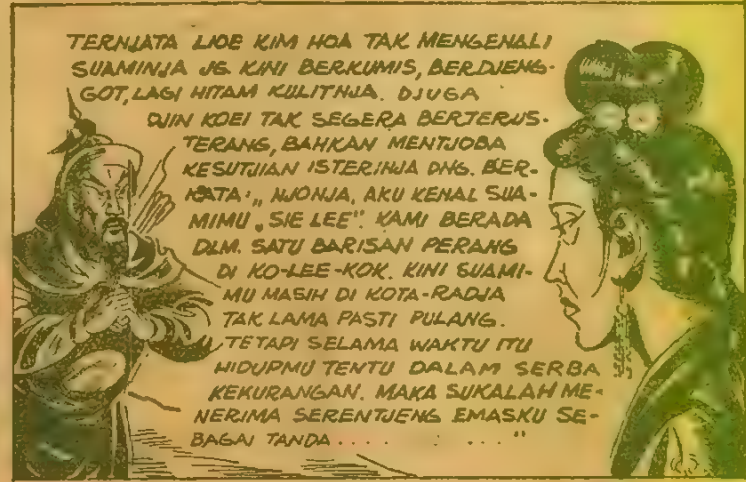 TERNJATA LIOE KIM HOA TAK MENGENALI
SUAMINJA JG. KINI BERKUMIS, BERDJENG-
GOT, LAGI HITAM KULITNJA. DJUGA
DJIN KOEI TAK SEGERA BERTERUS-
TERANG, BAHKAN MENTJOBA
KESUTJIAN ISTERINJA DNG. BER-
KATA: „NJONJA, AKU KENAL SUA-
MIMU „SIE LEE". KAMI BERADA
DLM. SATU BARISAN PERANG
DI KO-LEE-KOK. KINI SUAMI-
MU MASIH DI KOTA-RADJA
TAK LAMA PASTI PULANG.
TETAPI SELAMA WAKTU ITU
HIDUPMU TENTU DALAM SERBA
KEKURANGAN. MAKA SUKALAH ME-
NERIMA SERENTJENG EMASKU SE-
BAGAI TANDA . . . . . . . ."